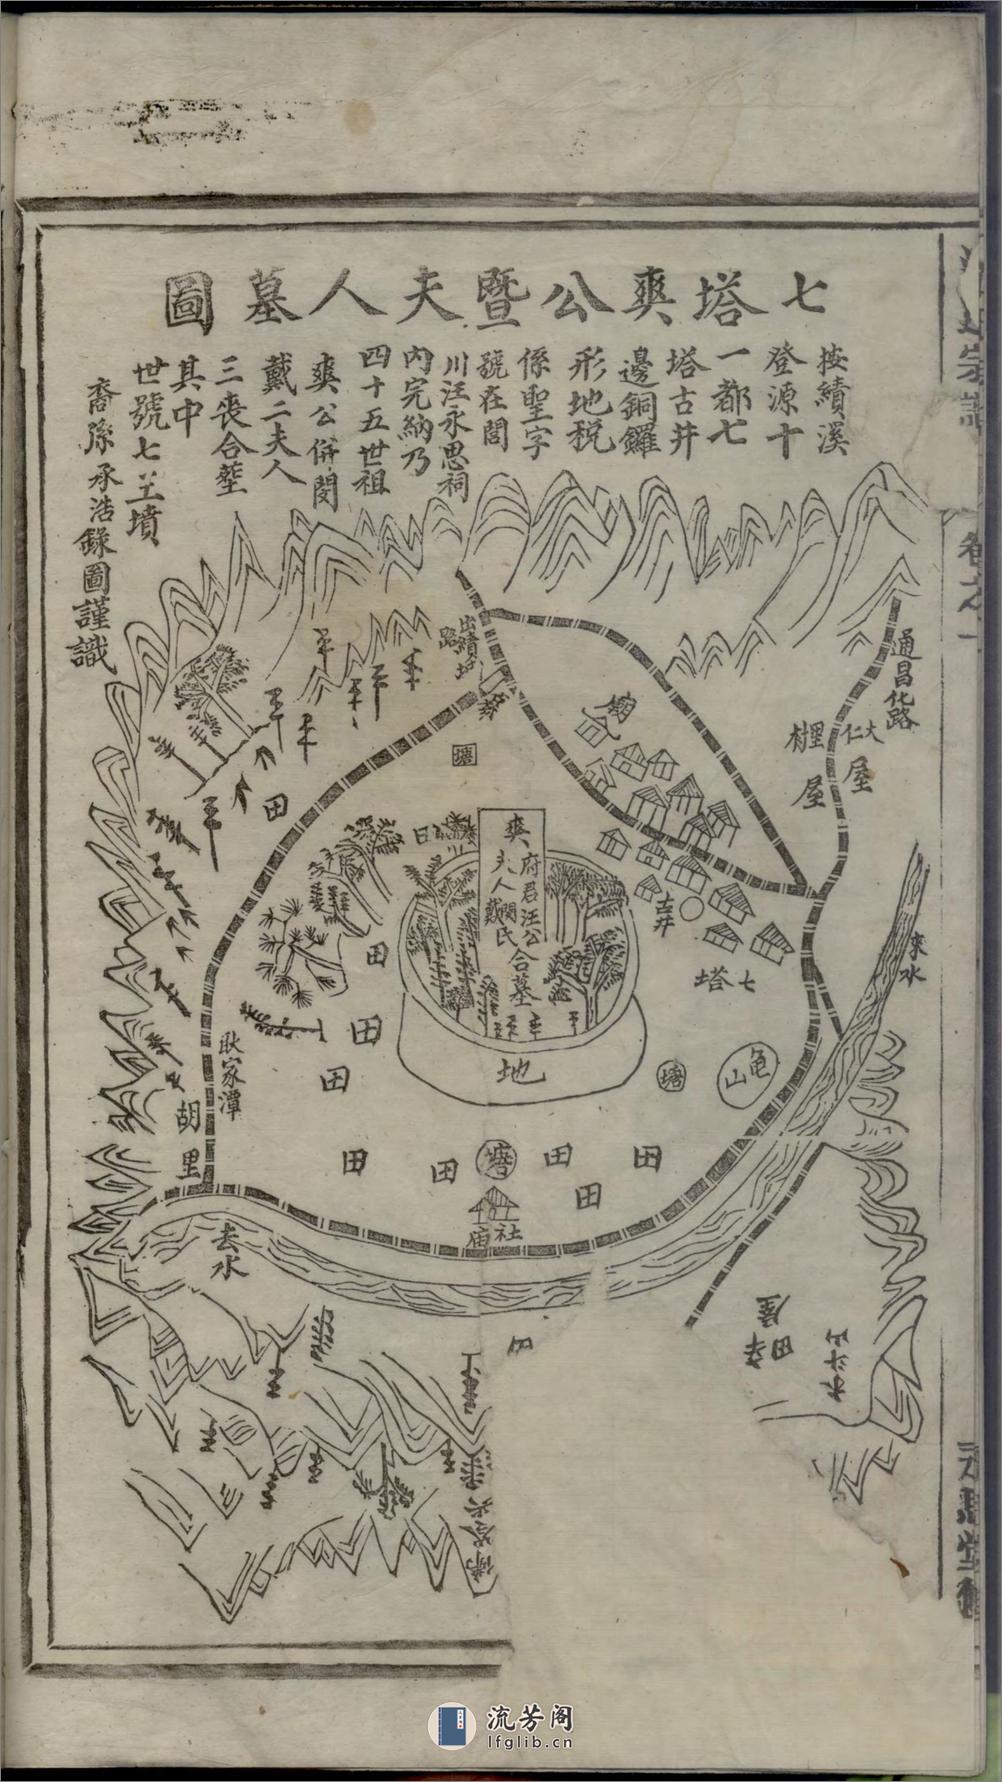 七塔爽公暨夫人墓圖
按績溪
登源十
一都七
塔古井
邊銅鑼
形地税
係聖字
號在閭
川汪永思祠
内完納乃
四十五世祖
爽公併閔
戴二夫人
三喪合塟
其中
世號七𦊆墳
裔孫承浩錄圖謹識
通昌化路
大仁屋
里村屋
來水
出績坑路
塘
廟
古井
七塔
龜山
塘
爽府君汪公
夫人閔氏戴
合墓
地
田
田
田
田
田
田
田
田
田
塘
社庙
耿家潭
胡里
去水
田
屋
水斗山
卷之一